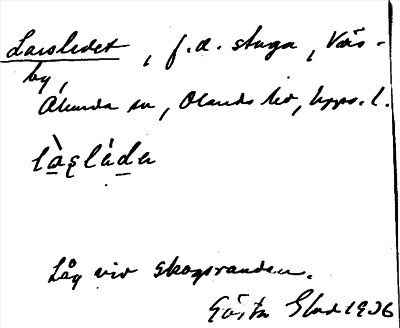 Larsledet, f.d. stuga, Väs-
by,
Ålunda sn, Olands hd, Upps. l.
Låg vid skogsranden.
Gösta 1936